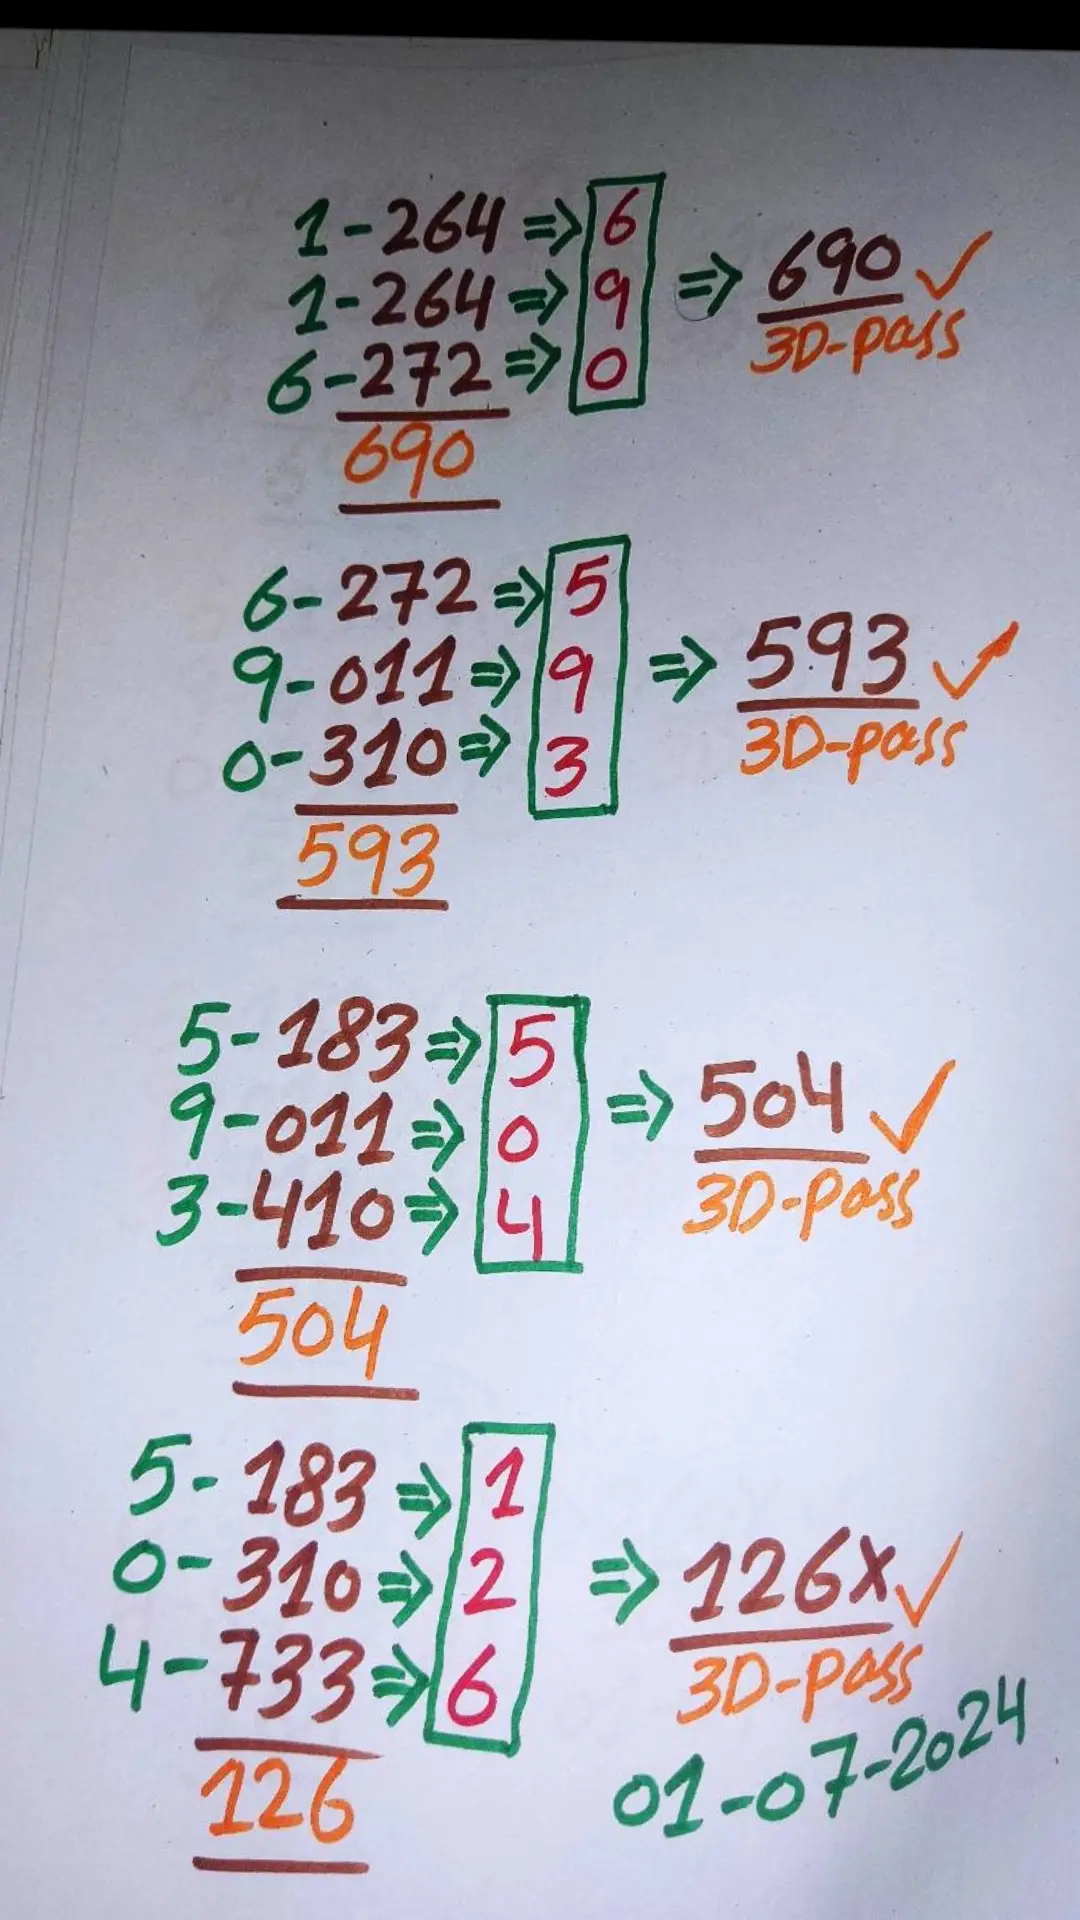 1-264 => 6
1-264 => 9 => 690 ✓
6-272 => 0 3D-pass
690
6-272 => 5
9-011 => 9 => 593 ✓
0-310 => 3 3D-pass
593
5-183 => 5
9-011 => 0 => 504 ✓
3-410 => 4 3D-pass
504
5-183 => 1
0-310 => 2 => 126x ✓
4-733 => 6 3D-pass
126
01-07-2024